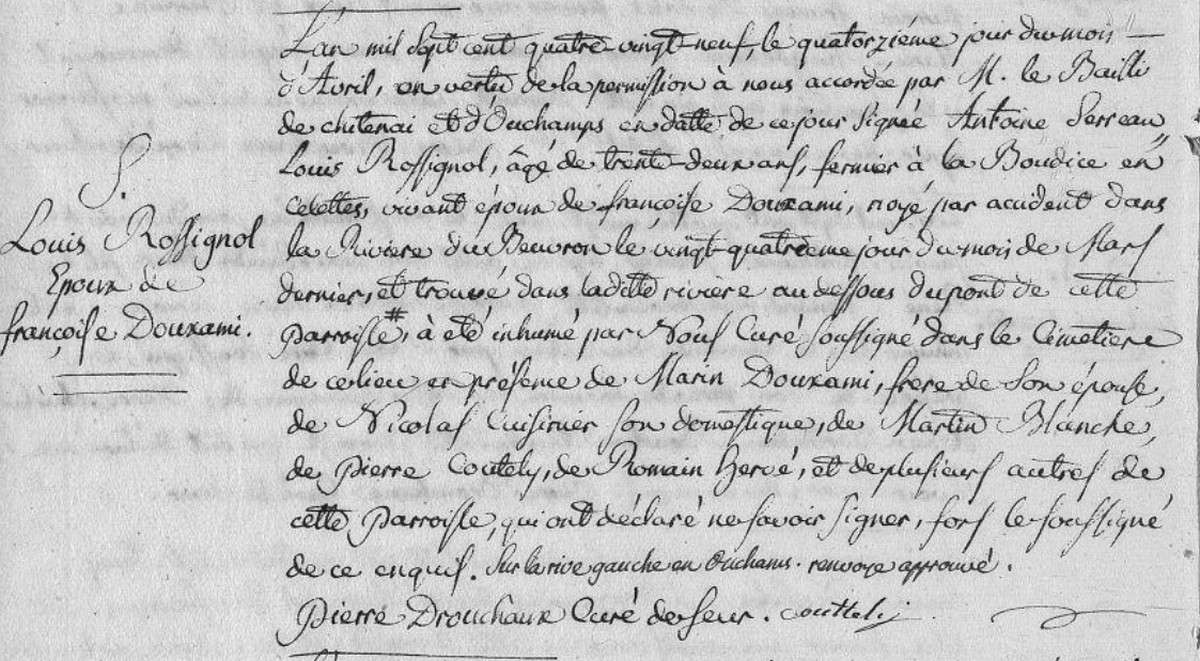 S.
Louis Rossignol
Epoux de
françoise Douxami.
L'an mil sept cent quatre-vingt-neuf le quatorzieme jour du mois
d'Avril, en vertu de la permission à nous accordée par M. le Bailli
de chitenai et d'Ouchamps en datte de ce jour signée Antoine Serreau,
Louis Rossignol, âgé de trente-deux ans, fermier à la Boudice en
celettes, vivant époux de françoise Douxami, noyé par accident dans
la Riviere du Beuvron le vingt-quatrieme jour du mois de Mars
dernier, et trouvé dans laditte riviere au dessous du pont de cette
parroisse #, à été inhumé par Nous Curé soussigné dans le Cimetiere
de ce lieu en présence de Marin Douxami, frere de son épouse,
de Nicolas Cuisinier son domestique, de Martin Blanche,
de pierre Coutely, de Romain Hervé, et de plusieurs autres de
cette parroisse, qui ont déclaré ne savoir signer, fors le soussigné
de ce enquis. sur la rive gauche en Ouchams. renvoye approuvé.
Pierre Drouchaux Curé de seur. Couttely